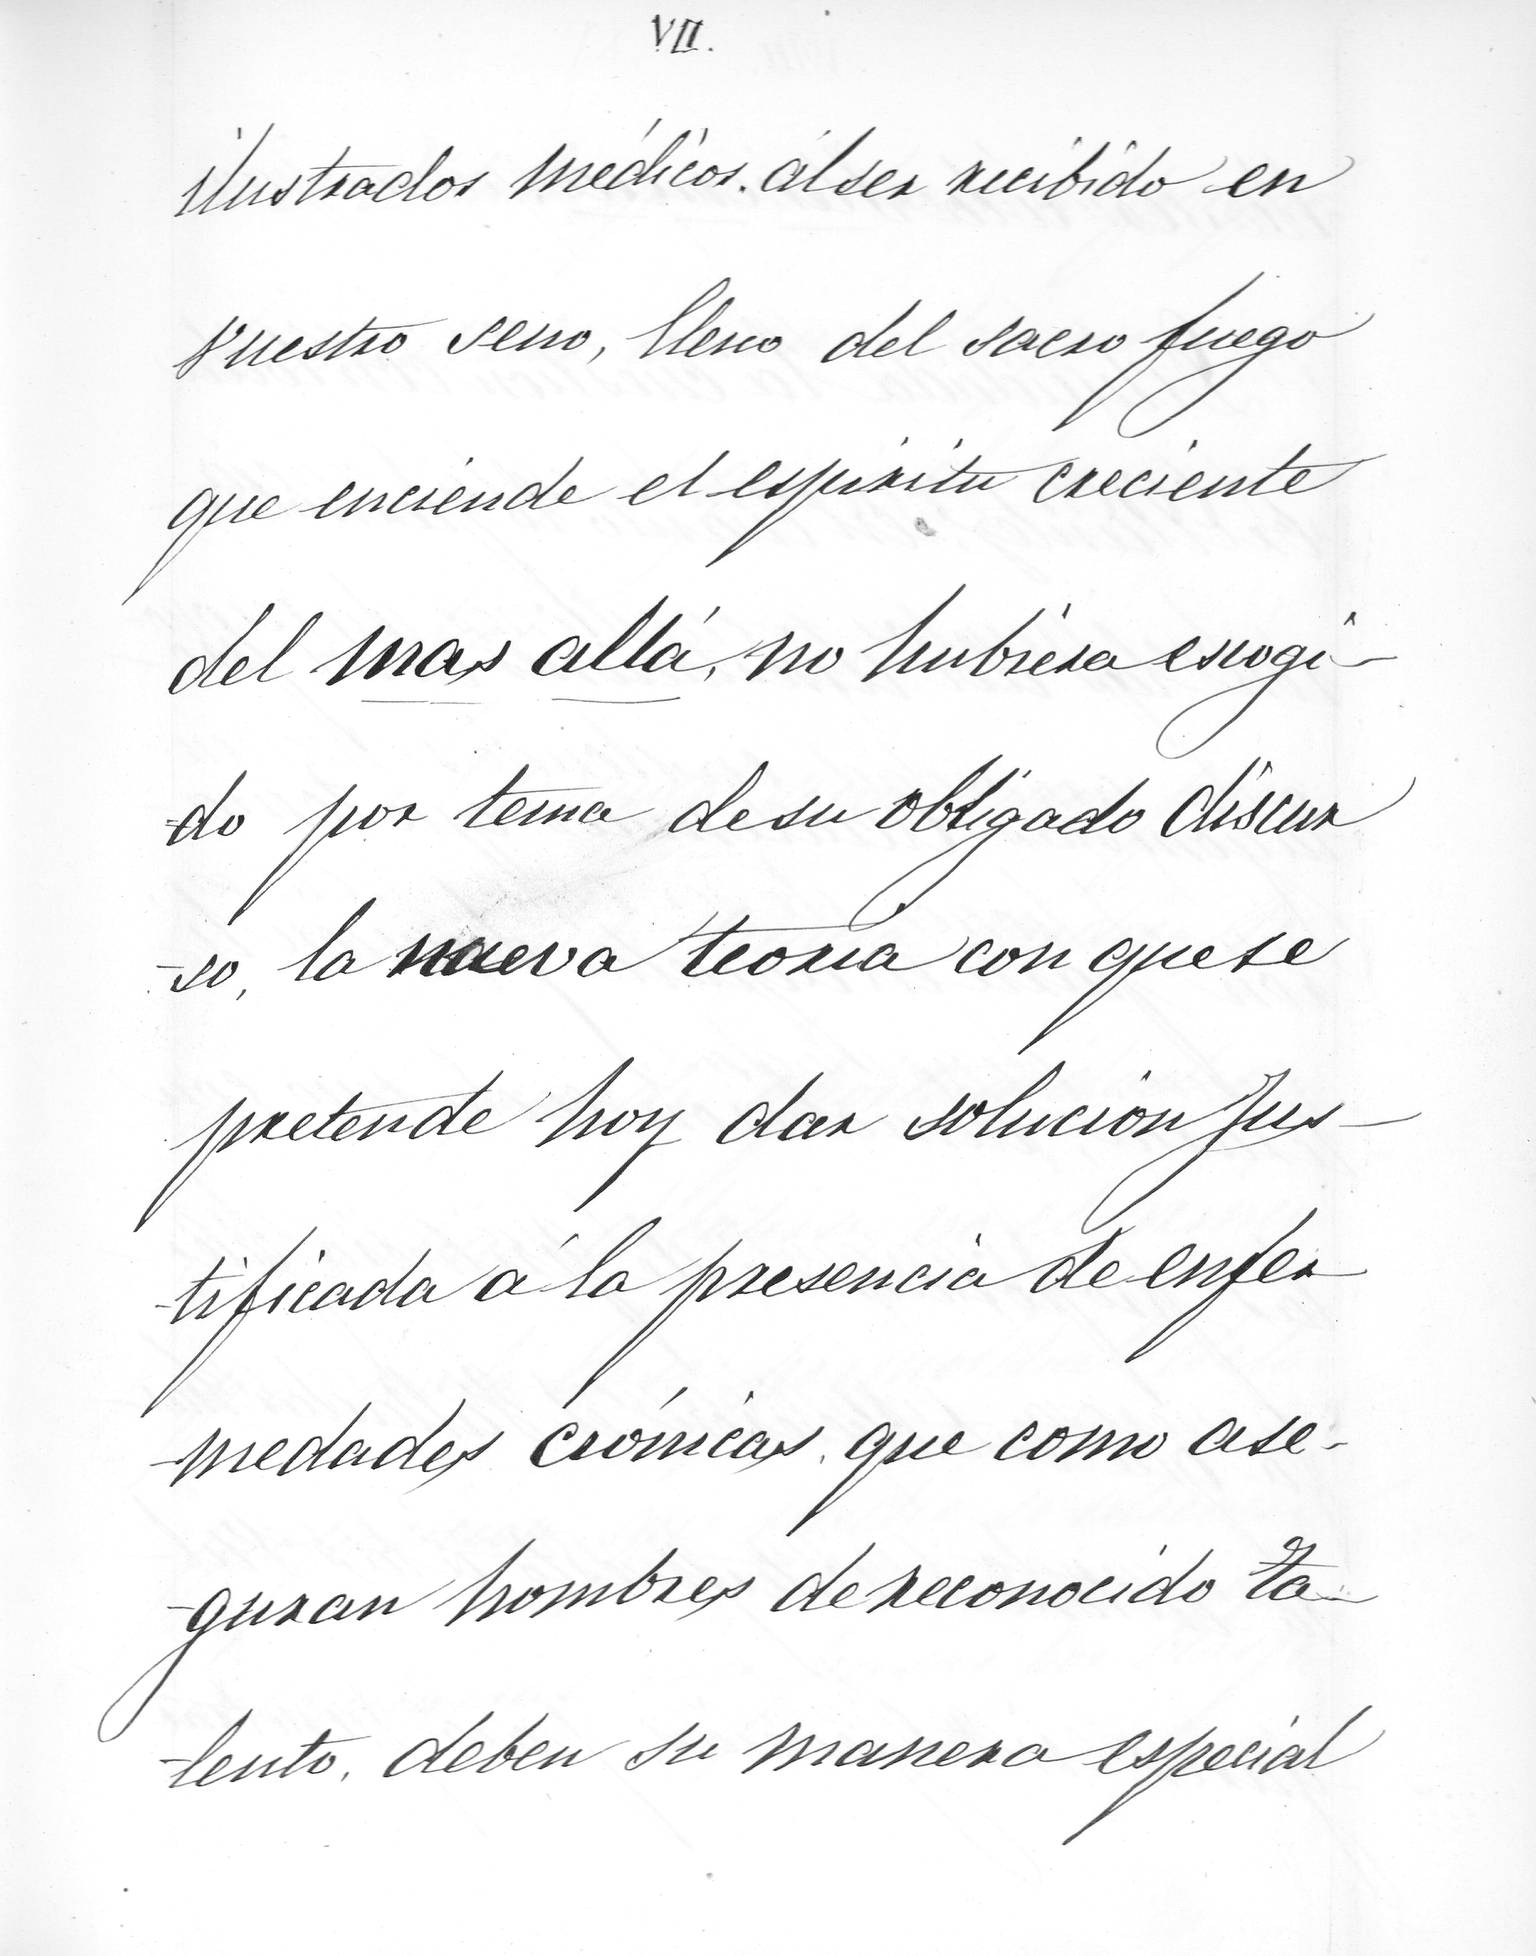 VII.
ilustrados médicos. al ser recibido en
vuestro seno, lleno del sacro fuego
que enciende el espiritu creciente
del mas allá, no hubiera escogi-
-do por tema de su obligado discur
-so, la nueva teoria con que se
pretende hoy dar solución jus-
-tificada á la presencia de enfer-
-medades crónicas, que como ase-
-guran hombres de reconocido ta-
-lento, deben su manera especial